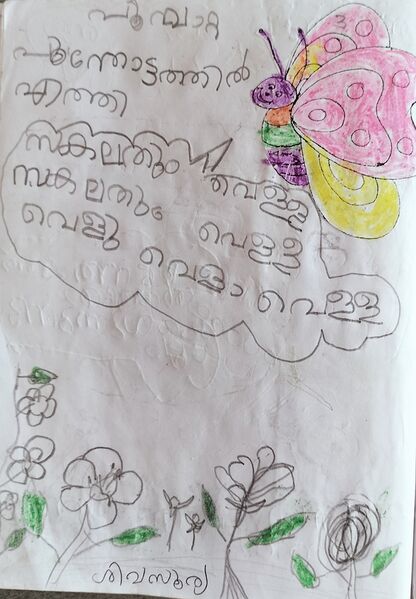 പൂമ്പാറ്റ
പൂന്തോട്ടത്തിൽ
എത്തി
സകലതും വെള്ള
സകലതും വെള്ള
വെളു വെളാ വെള്ള
ശിവസൂര്യ